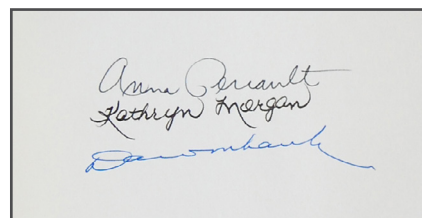 Anna Perrault
Kathryn Morgan